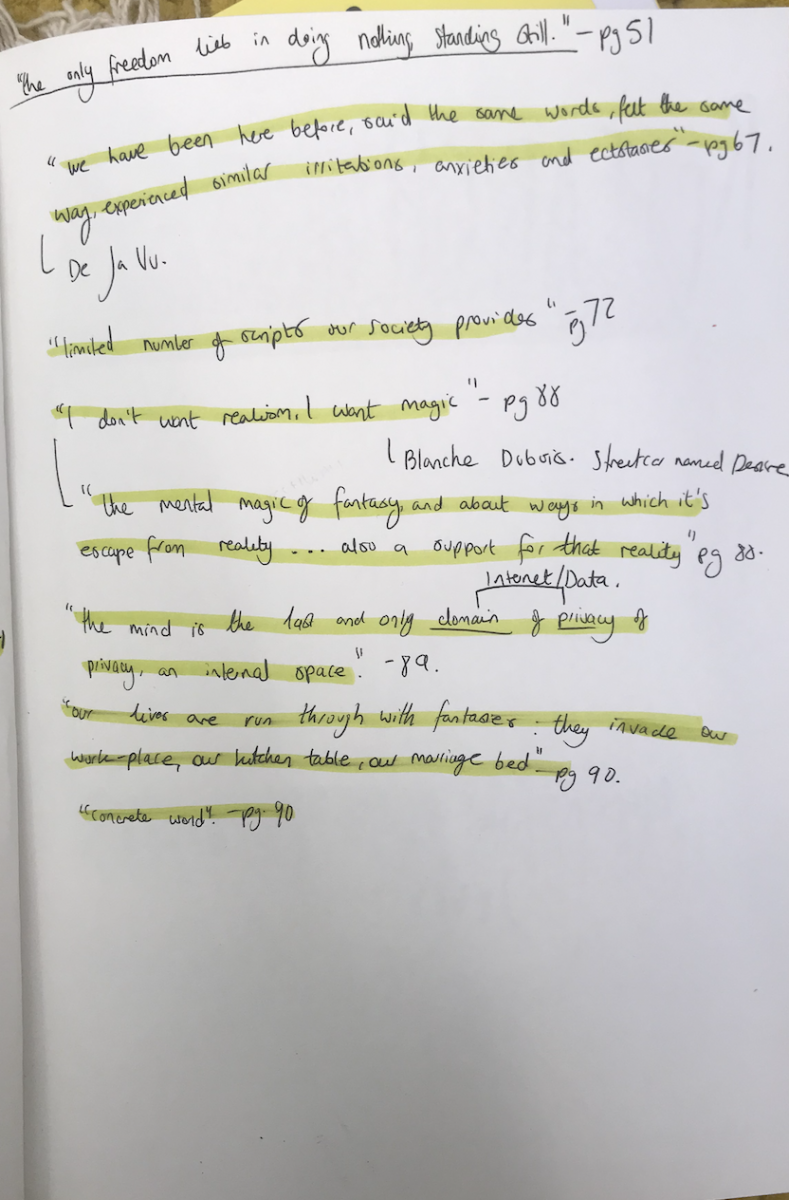 "the only freedom lies in doing nothing, standing still." - pg 51
"we have been here before, said the same words, felt the same
way, experienced similar irritations, anxieties and ectstasies" - pg 67.
De Ja Vu.
"limited number of scripts our society provides" - pg 72
"I don't want realism, I want magic" - pg 88
Blanche Dubois. Streetcar named Desire
"the mental magic of fantasy, and about ways in which it's
escape from reality ... also a support for that reality" pg 88.
Internet/Data.
"the mind is the last and only domain of privacy of
privacy, an internal space". - 89.
"our lives are run through with fantasies: they invade our
work-place, our kitchen table, our marriage bed" - pg 90.
"concrete word". - pg. 90